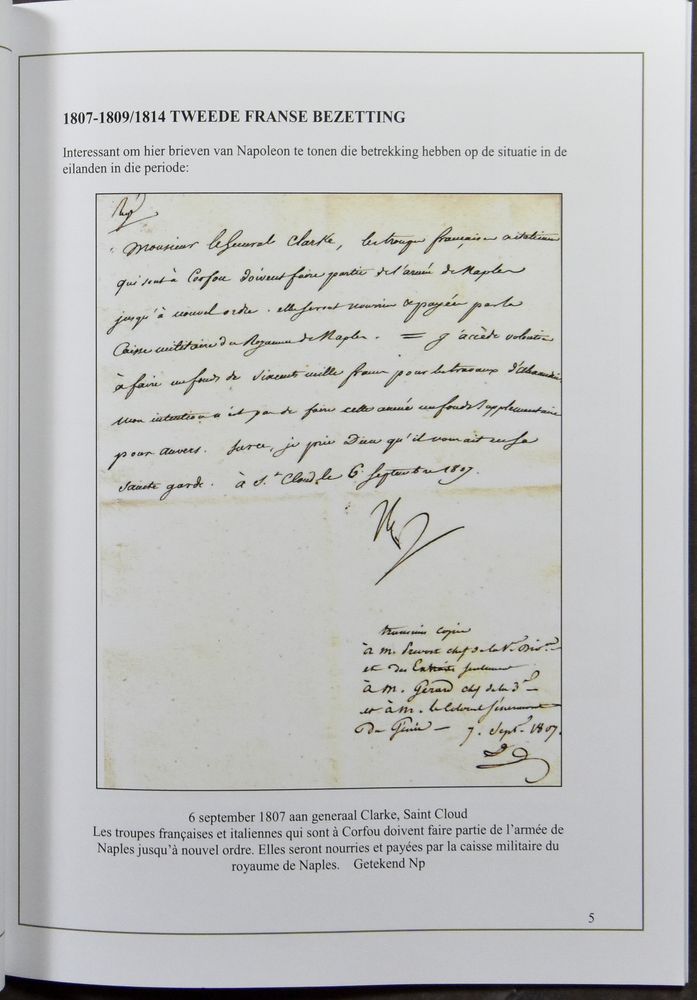 1807-1809/1814 TWEEDE FRANSE BEZETTING
Interessant om hier brieven van Napoleon te tonen die betrekking hebben op de situatie in de
eilanden in die periode:
Monsieur le General Clarke, les troupes françaises et italiennes
qui sont à Corfou doivent faire partie de l'armée de Naples
jusqu'à nouvel ordre. elles seront nourries et payées par la
Caisse militaire du Royaume de Naples. = j'accède volontiers
à faire un fonds de vingt mille francs pour les travaux d'Alexandrie.
mon intention n'est pas de faire cette année un fonds supplémentaire
pour anvers. Sur ce, je prie Dieu qu'il vous ait en sa
Sainte garde. à St Cloud, le 6 Septembre 1807.
Np
copie
à M. chef de la
et des Extraits seulement
à M. Gérard chef de la 3e
et à M. le Colonel
Du Génie - 7. Sept. 1807.
6 september 1807 aan generaal Clarke, Saint Cloud
Les troupes françaises et italiennes qui sont à Corfou doivent faire partie de l'armée de
Naples jusqu'à nouvel ordre. Elles seront nourries et payées par la caisse militaire du
royaume de Naples. Getekend Np
5